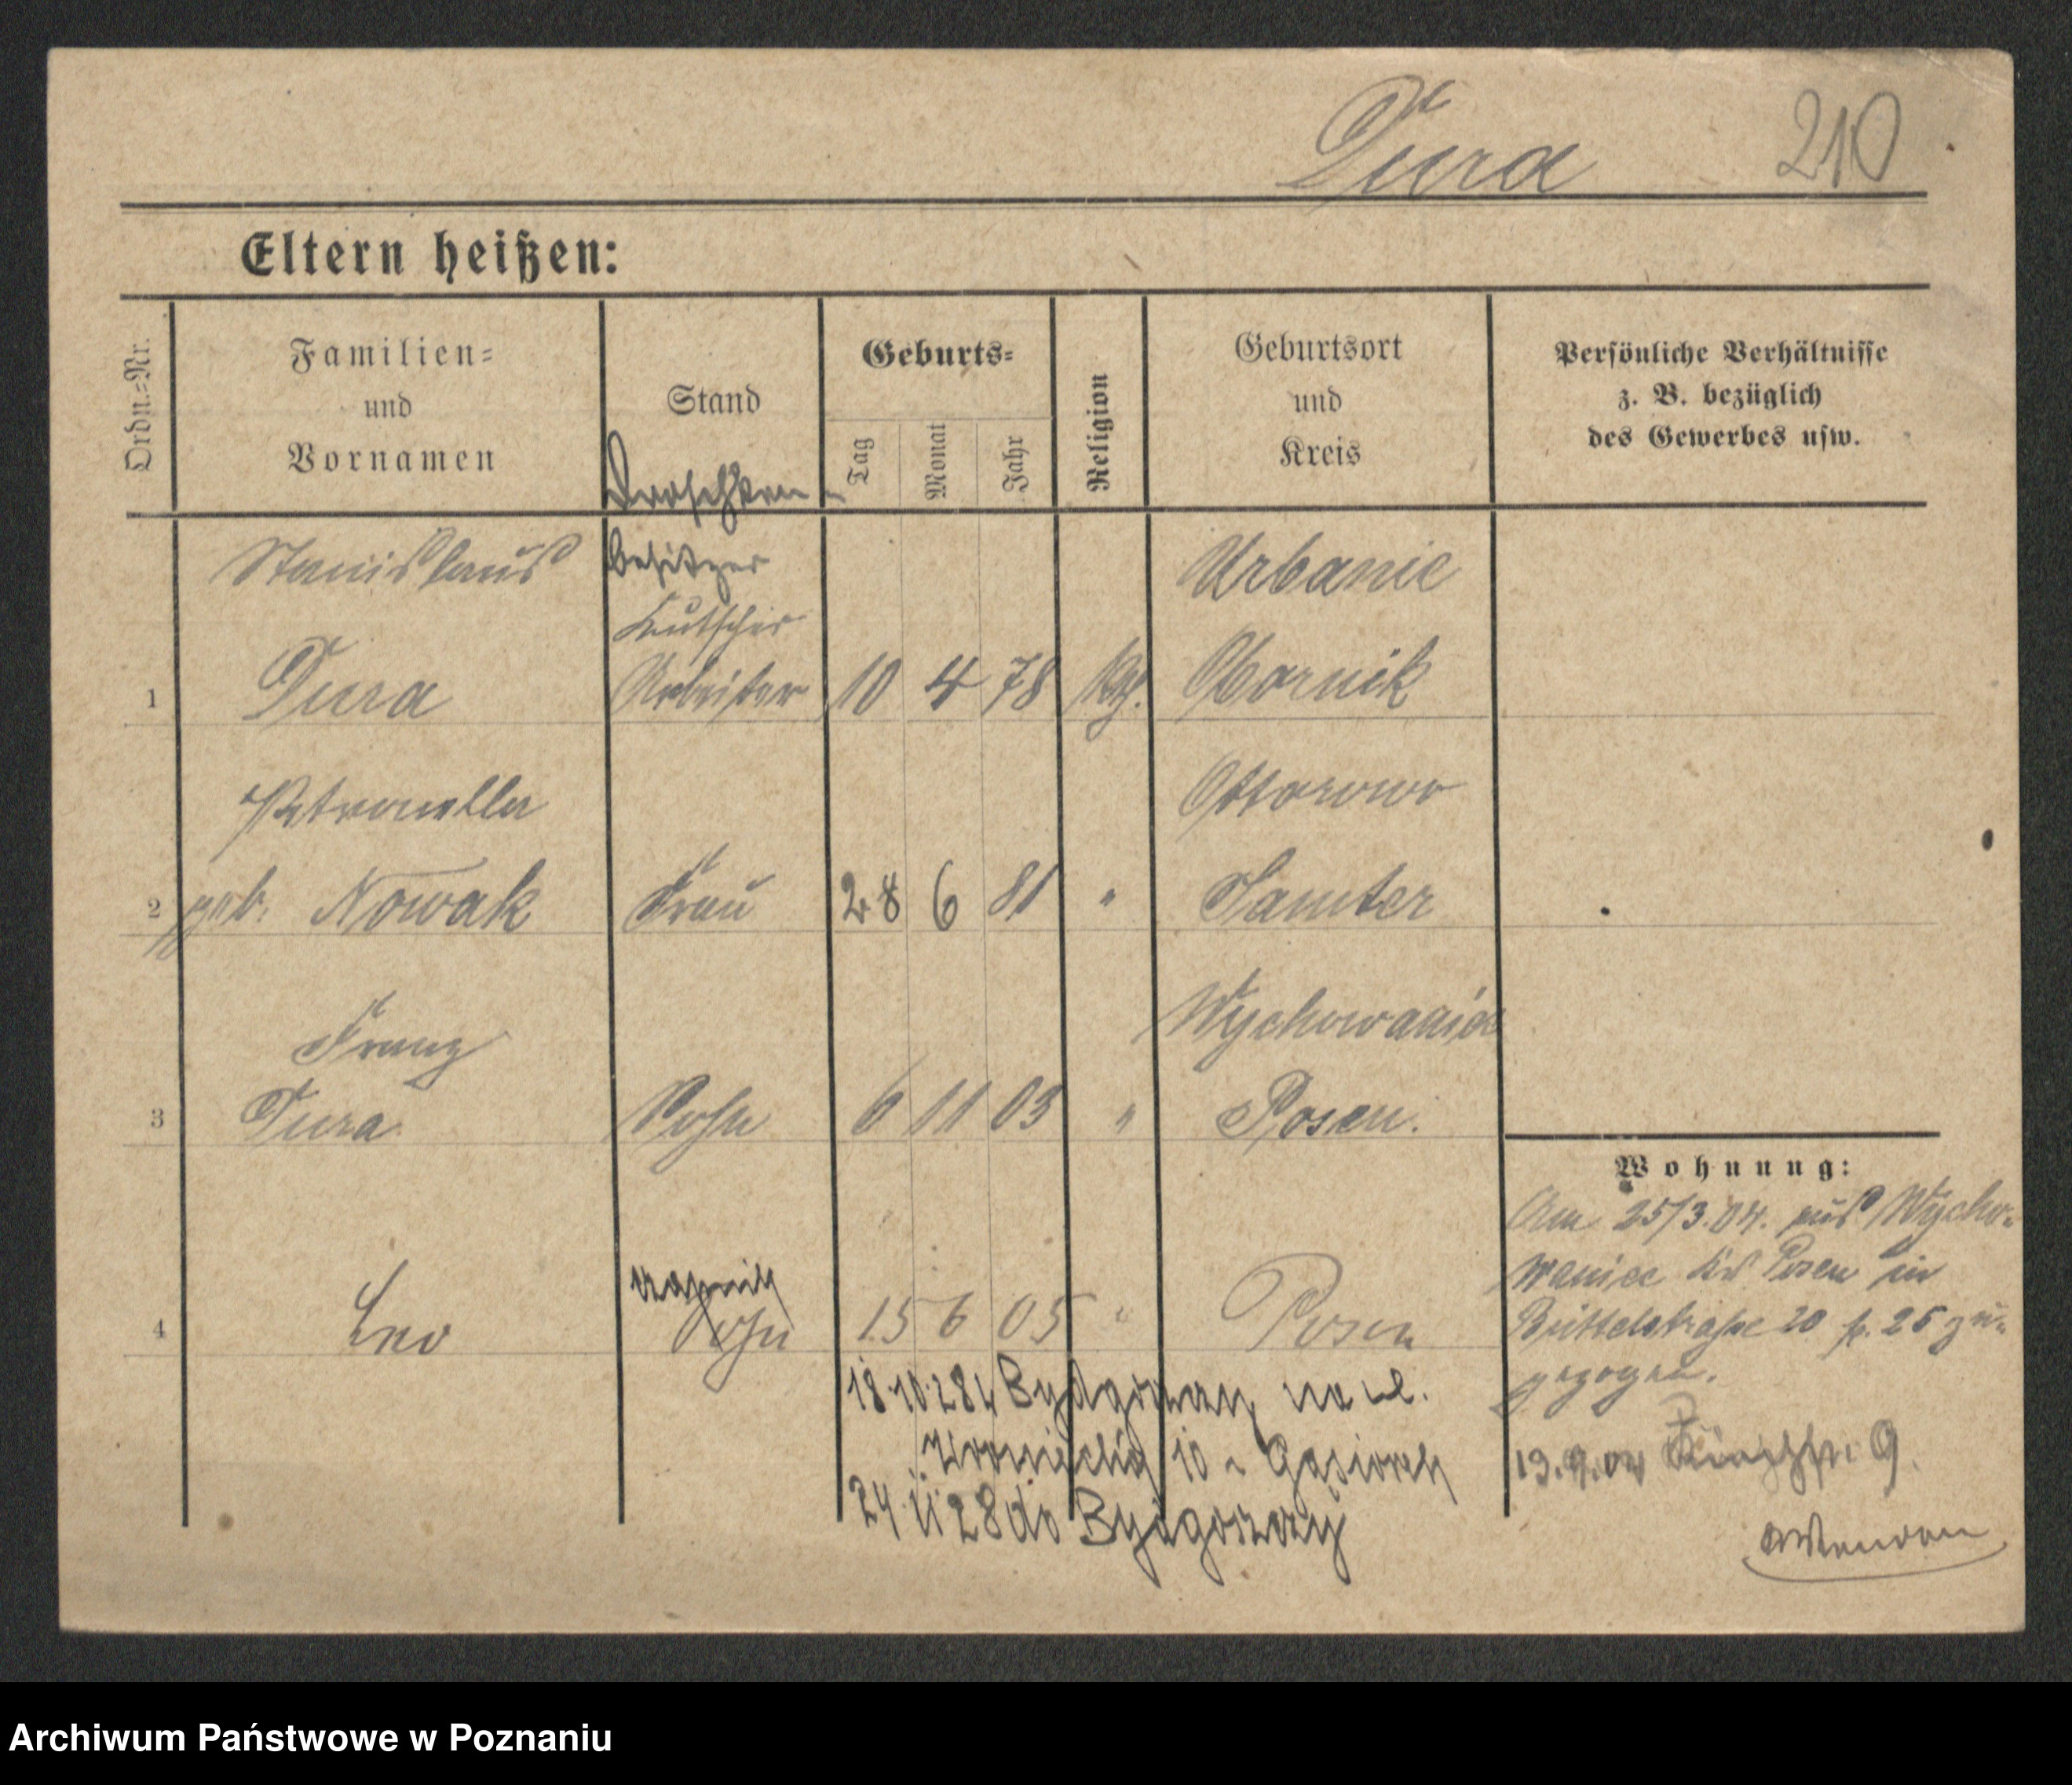 Dura 210
Eltern heißen:
Ordn.-Nr.
Familien-
und
Vornamen
Stand
Geburts-
Tag
Monat
Jahr
Religion
Geburtsort
und
Kreis
Persönliche Verhältnisse
z. B. bezüglich
des Gewerbes usw.
Droschken-
Stanislaus besitzer Urbanie
Kutscher
1 Dura Arbeiter 10 4 78 kth. Obornik
Petronella Ottorowo
2 geb. Nowak Frau 28 6 81 " Samter
Franz Wychowaniec
3 Dura Sohn 6 11 03 " Posen.
Wohnung:
Am 25/3.04. aus Wycho-
waniec Kr Posen in
4 Leo Sohn 15 6 05 " Posen
Büttelstraße 20 p. 25 zu-
gezogen.
18.10.28 z Bydgoszczy na ul.
Wroniecką 10 Gąsiorek
13.9.04 9.
24 11 28 do Bydgoszczy
Archiwum Państwowe w Poznaniu